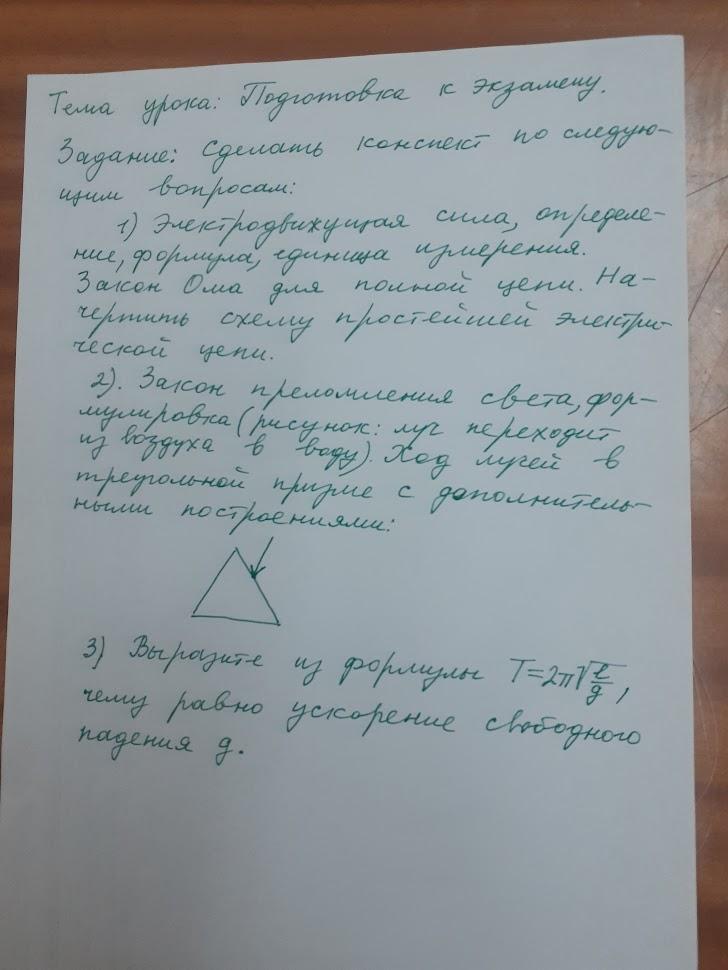 Тема урока: Подготовка к экзамену.
Задание: Сделать конспект по следую-
щим вопросам:
1) Электродвижущая сила, определе-
ние, формула, единица измерения.
Закон Ома для полной цепи. На-
чертить схему простейшей электри-
ческой цепи.
2). Закон преломления света, фор-
мулировка (рисунок: луч переходит
из воздуха в воду). Ход лучей в
треугольной призме с дополнитель-
ными построениями:
3) Выразите из формулы T=2π√(l/g),
чему равно ускорение свободного
падения g.